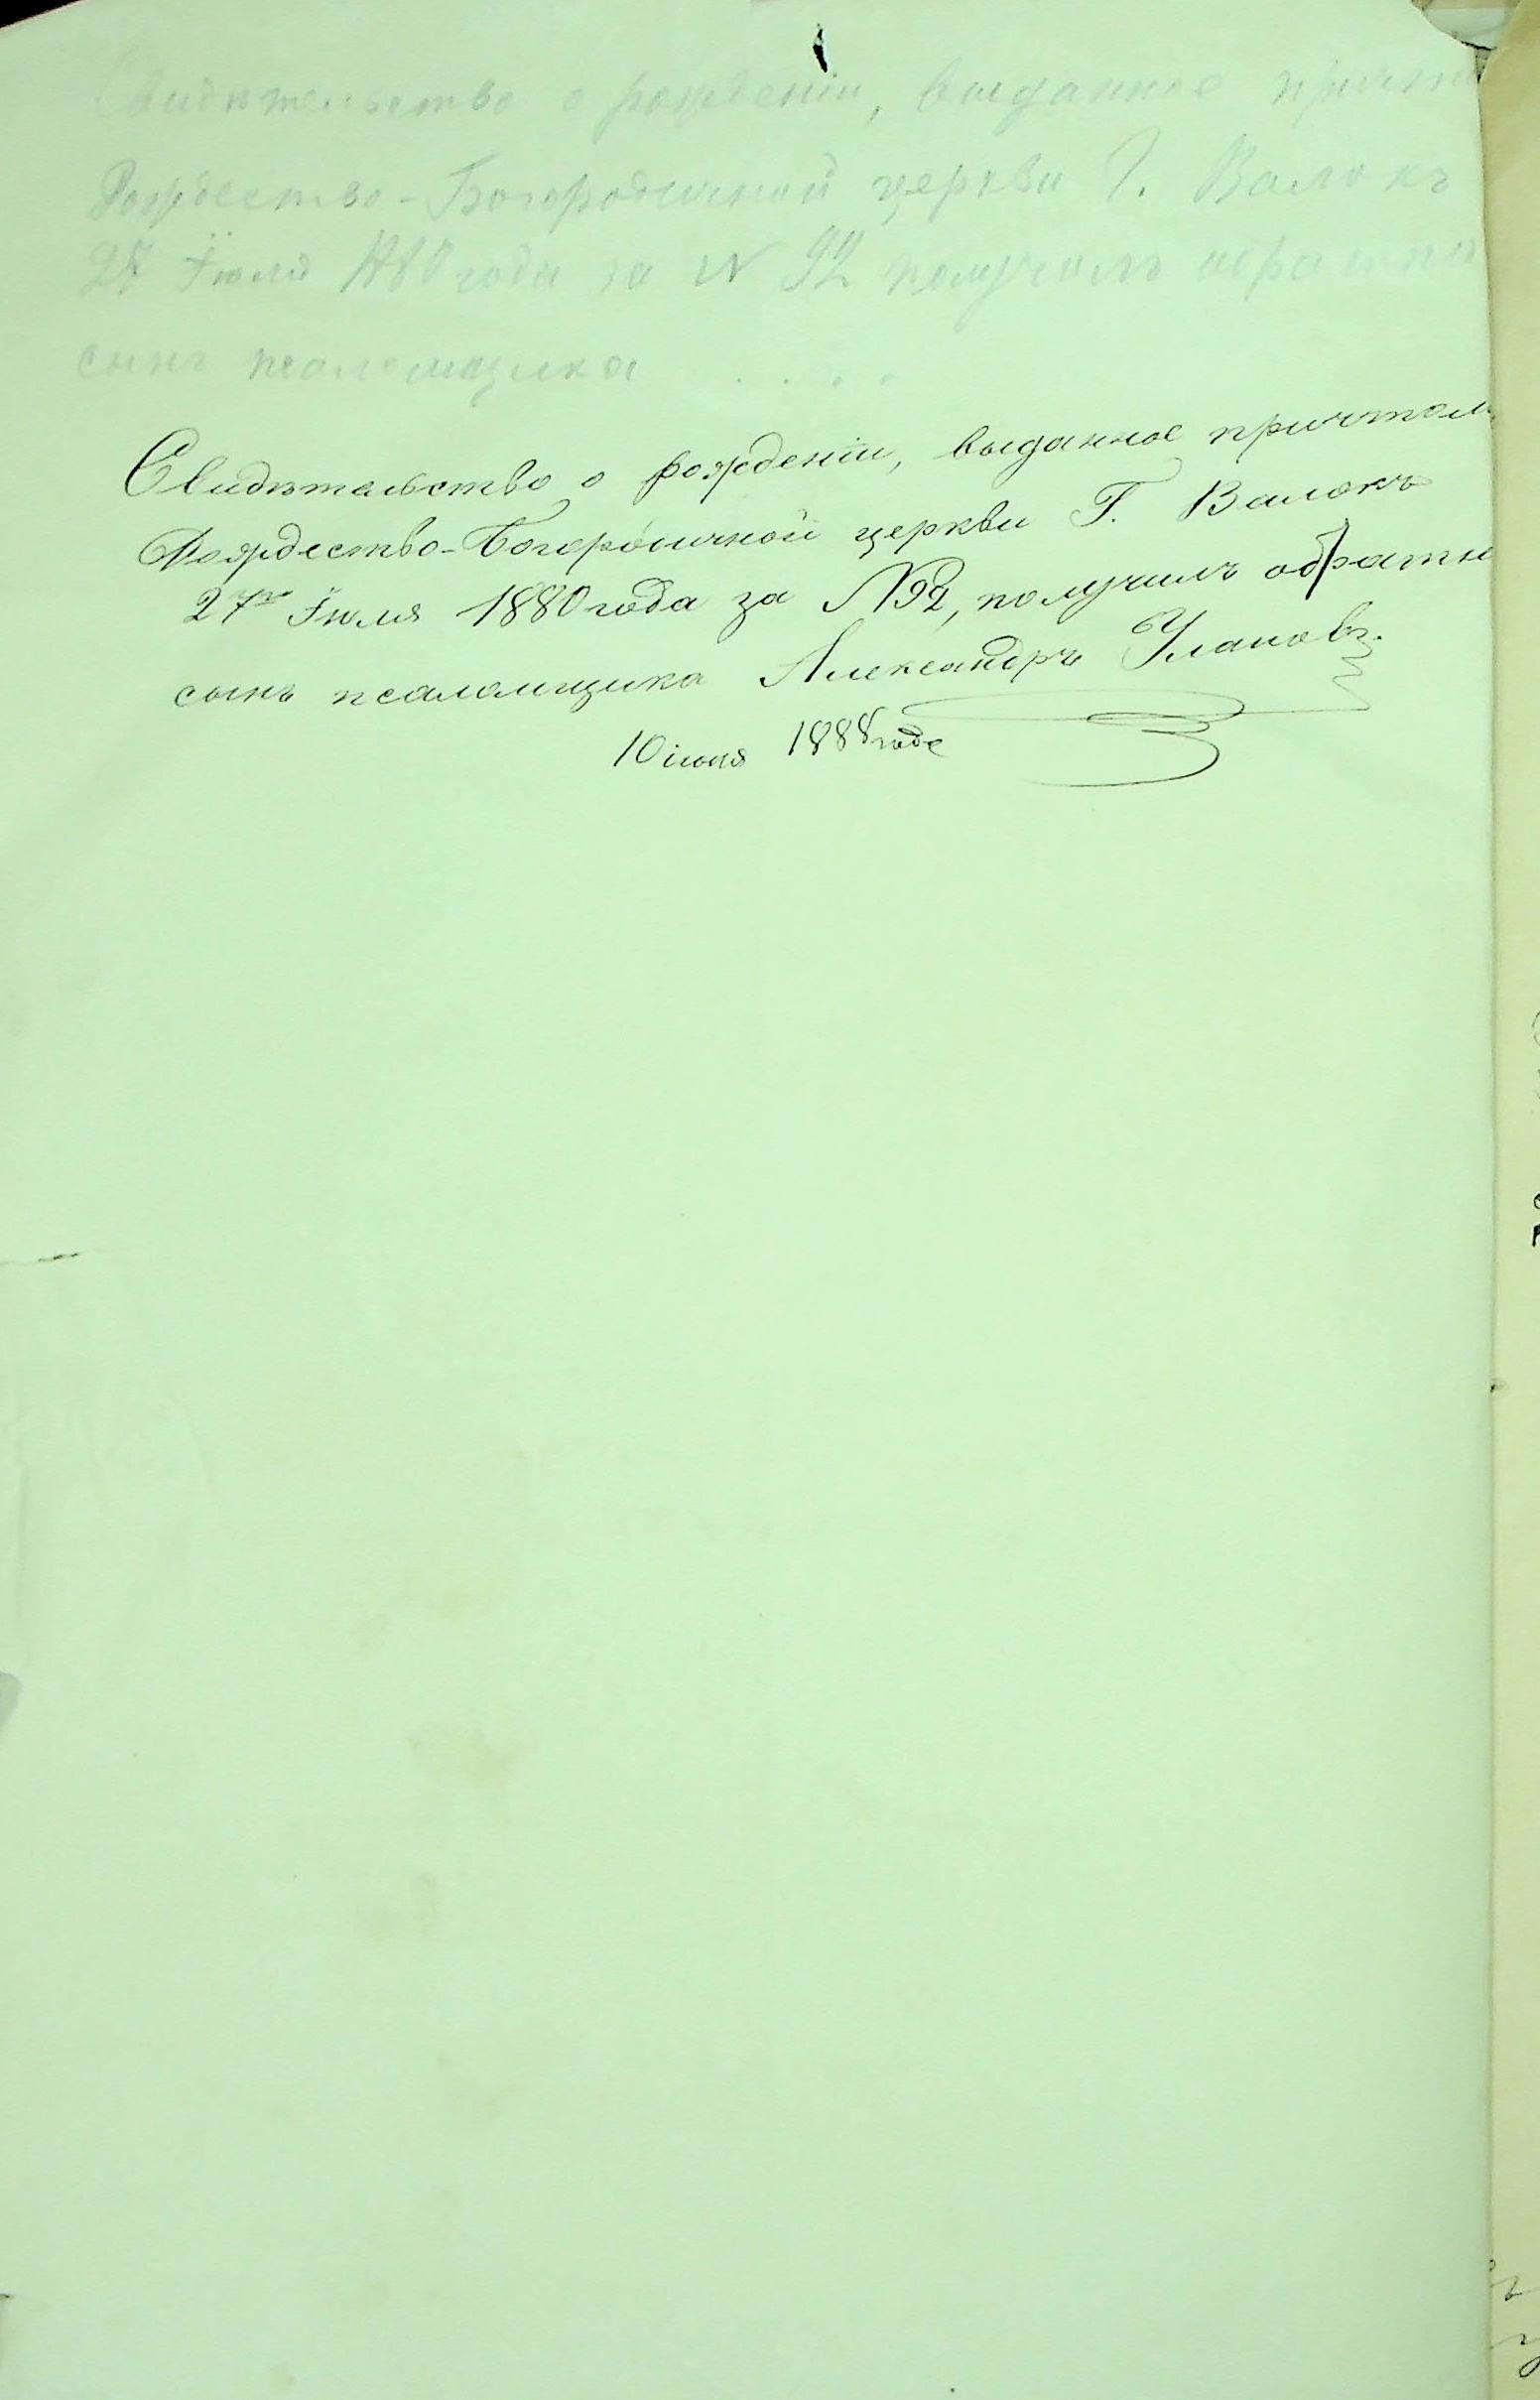 Свидѣтельство о рожденіи, выданное причт
Рождество-Богородичной церкви Г. Валокъ
27 Іюля 1880 года за N 92 получилъ обратно
сынъ псаломщика . . . .
Свидѣтельство о рожденіи, выданное причтом
Рождество-Богородичной церкви Г. Валокъ
27го Іюля 1880 года за N92, получилъ обратн
сынъ псаломщика Александръ Улановъ.
10 іюня 1888 года